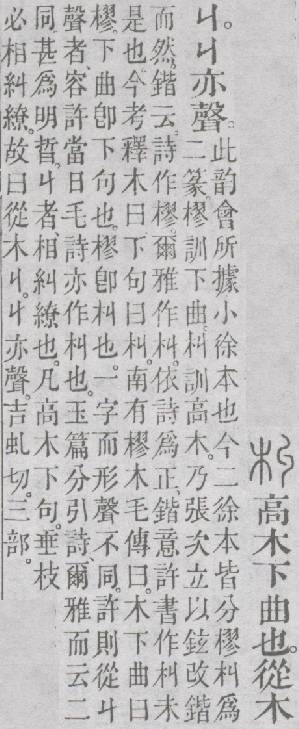 朻 高木下曲也。從木
丩。丩亦聲。
此韵會所據小徐本也今二徐本皆分樛朻爲
二篆樛訓下曲。朻訓高木。乃張次立以鉉改鍇
而然。鍇云。詩作樛。爾雅作朻。依詩爲正。鍇意許書作朻未
是也。今考釋木曰。下句曰朻。南有樛木毛傳曰。木下曲曰
樛。下曲卽下句也。樛卽朻也。一字而形聲不同。許則從丩
聲者。容許當日毛詩亦作朻也。玉篇分引詩、爾雅而云二
同甚爲明晳。丩者、相糾繚也。凡高木下句。垂枝
必相糾繚。故曰從木丩。丩亦聲。吉虬切。三部。